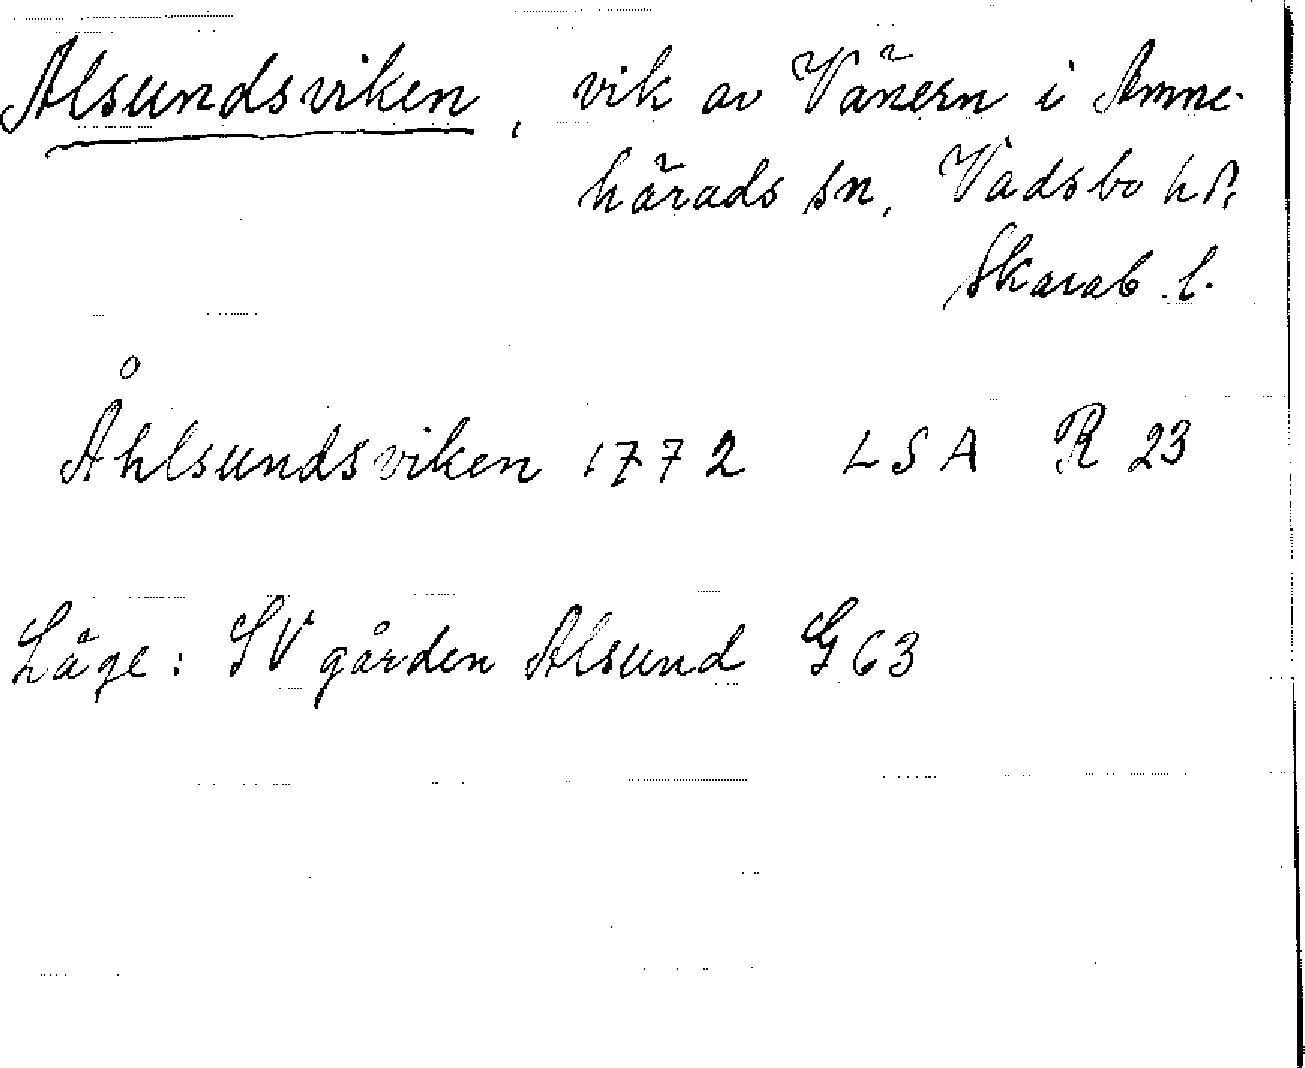 Alsundsviken, vik av Vänern i Amne-
härads sn, Vadsbo hd,
Skarab. l.
Åhlsundsviken 1772 LSA R 23
Läge: SV gården Alsund G63